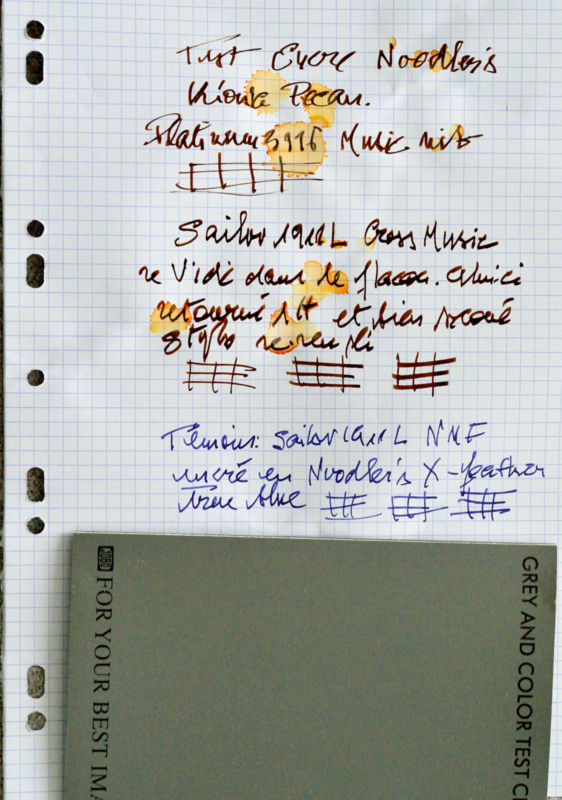 Test Encre Noodler's
Kiowa Pecan.
Platinum 3776 Music nib
Sailor 1911L Cross Music
re Vidé dans le flacon. Celui ci
retourné 1H et bien secoué
stylo rempli
Témoin: Sailor 1911L NMF
encré en Noodler's X-feather
blue
JOBO FOR YOUR BEST IMA
GREY AND COLOR TEST C